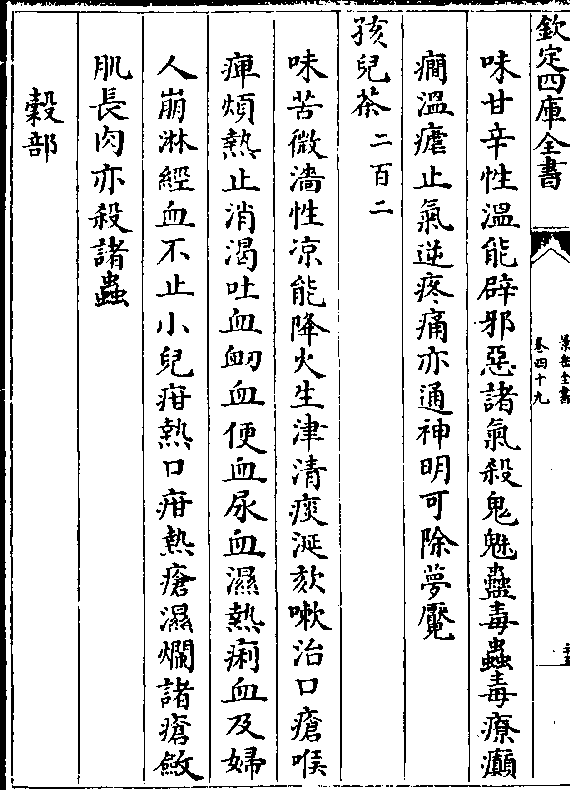 欽定四庫全書
景岳全書
卷四十九
味甘辛性溫能辟邪惡諸氣殺鬼魅蠱毒蟲毒療癲
癇溫瘧止氣逆疼痛亦通神明可除夢魘
孩兒茶二百二
味苦微濇性凉能降火生津清痰涎欬嗽治口瘡喉
痺煩熱止消渴吐血衂血便血尿血濕熱痢血及婦
人崩淋經血不止小兒疳熱口疳熱瘡濕爛諸瘡斂
肌長肉亦殺諸蟲
穀部